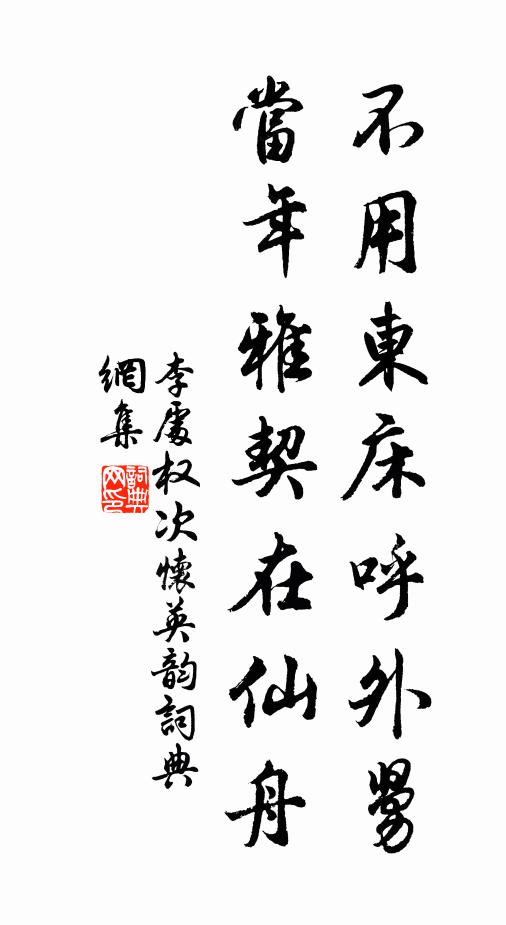 不用東床呼外舅
當年雅契在仙舟
李處权次懷英韵詞典
網集
詞典網印